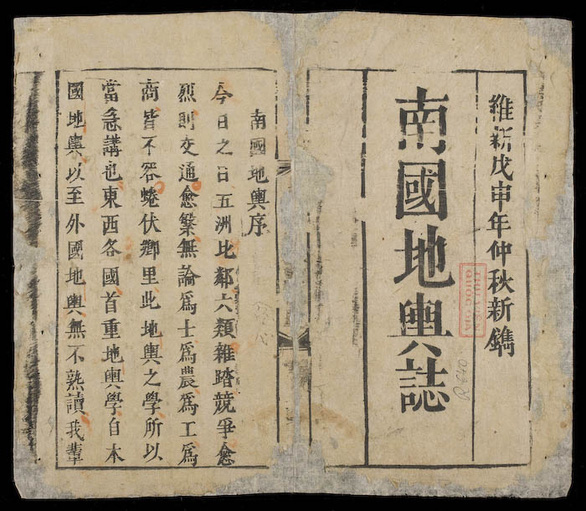 維新戊申年仲秋新鐫
南國地輿誌
南國地輿序
今日之日五洲比鄰六類雜踏競爭愈
烈則交通愈繁無論爲士爲農爲工爲
商皆不容蜷伏鄉里此地輿之學所以
當急講也東西各國首重地輿學自本
國地輿以至外國地輿無不熟讀我輩